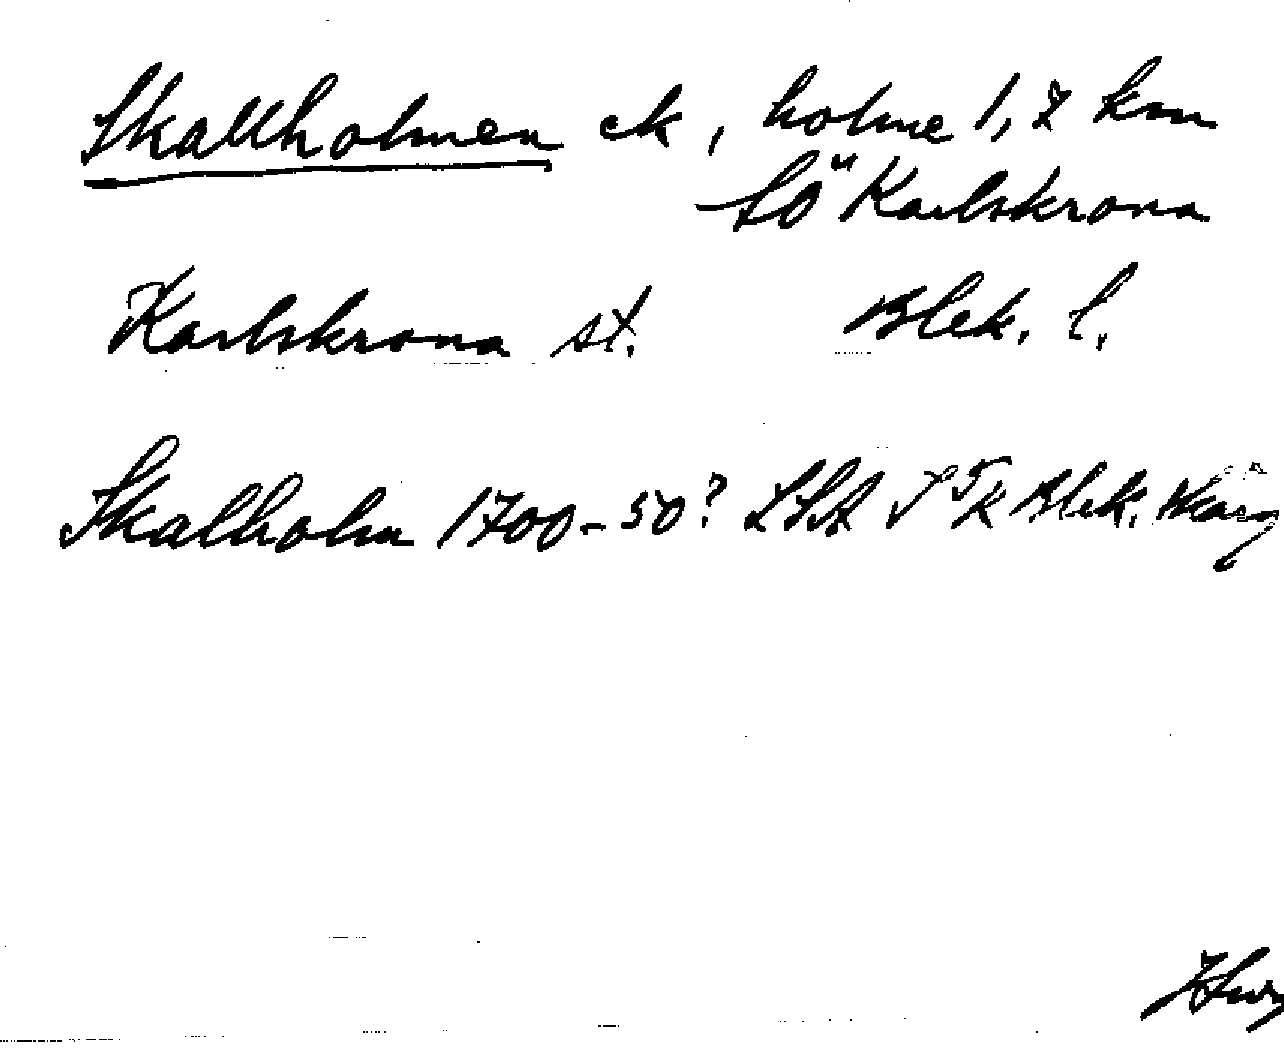 Skallholmen ek, holme 1,7 km
SÖ Karlskrona
Karlskrona st. Blek. l.
Skalholm 1700-50? LSA Blek. Skärg